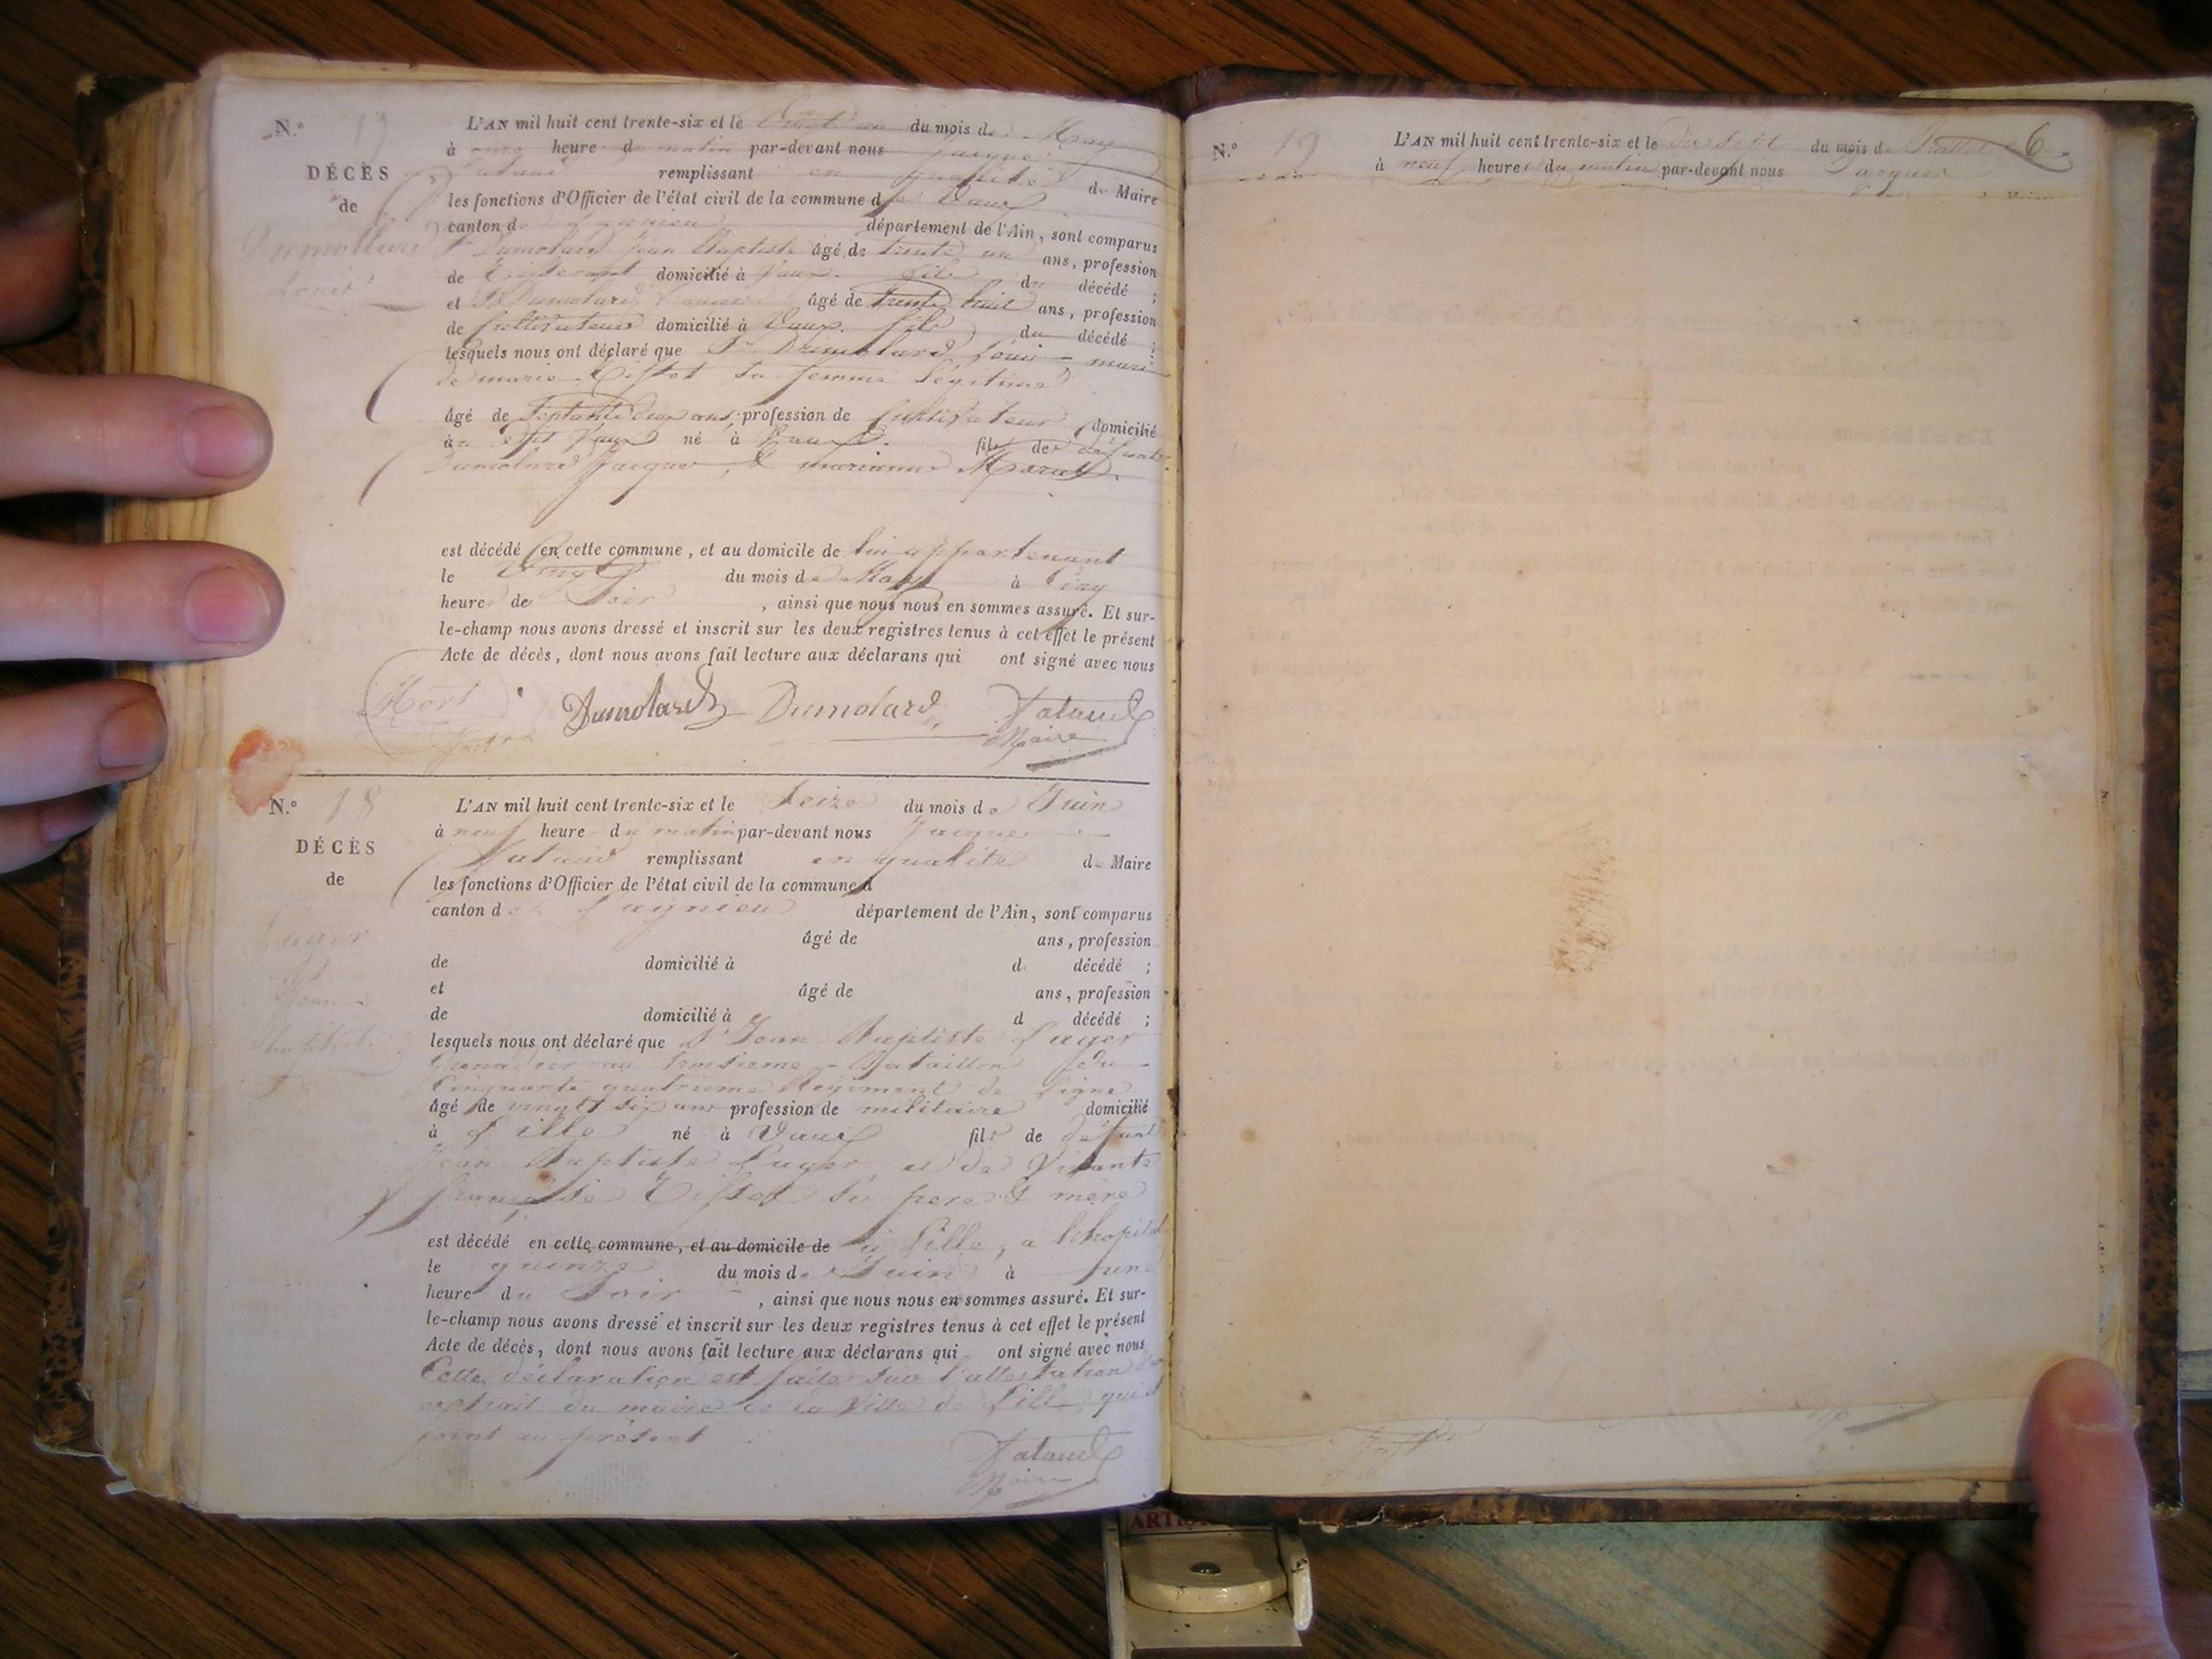 N.° 17
DÉCÈS
de
Dumollard
Louis
L'AN mil huit cent trente-six et le vingt un du mois de May
à onze heure du matin par-devant nous Jacques
Tataud remplissant en qualité de Maire
les fonctions d'Officier de l'état civil de la commune de Vaux
canton de Lagnieu département de l'Ain, sont comparus
Sr Dumolard Jean Baptiste âgé de trente un ans, profession
de Tisserant domicilié à Vaux. fils du décédé ;
et Sr Dumolard âgé de trente huit ans, profession
de Cultivateur domicilié à Vaux. fils du décédé ;
lesquels nous ont déclaré que Sr Dumolard Louis mari
de marie Tistet sa femme légitime
âgé de Septante deux ans, profession de Cultivateur domicilié
au dit Vaux né à Vaux. fils de défunts
Dumolard Jacques, & marianne Moral.
est décédé en cette commune, et au domicile de lui appartenant
le vingt du mois de May à cinq
heure de Soir , ainsi que nous nous en sommes assuré. Et sur-
le-champ nous avons dressé et inscrit sur les deux registres tenus à cet effet le présent
Acte de décès, dont nous avons fait lecture aux déclarans qui ont signé avec nous
Mort
Dumolard Dumolard Tataud
Maire
N.° 18
DÉCÈS
de
Lager
Jean
baptiste
L'AN mil huit cent trente-six et le Seize du mois de Juin
à neuf heure du matin par-devant nous Jacques
Tataud remplissant en qualité de Maire
les fonctions d'Officier de l'état civil de la commune d
canton de Lagnieu département de l'Ain, sont comparus
âgé de ans, profession
de domicilié à d décédé ;
et âgé de ans, profession
de domicilié à d décédé ;
lesquels nous ont déclaré que Sr Jean Baptiste Lager
Grenadier au troisieme Bataillon du
Cinquante quatrieme Regiment de Ligne
âgé de vingt six ans profession de militaire domicilié
à Lille né à Vaux fils de défunt
Jean Baptiste Lager et de Vivante
françoise Tistet ses pere & mère
est décédé en cette commune, et au domicile de à Lille, a lhopital
le quinze du mois de Juin à une
heure du Soir , ainsi que nous nous en sommes assuré. Et sur-
le-champ nous avons dressé et inscrit sur les deux registres tenus à cet effet le présent
Acte de décès, dont nous avons fait lecture aux déclarans qui ont signé avec nous
Cette déclaration est faite sur l'attestation
extrait du maire de la Ville de Lille qui
joint au présent
Tataud
Maire
N.° 19
L'AN mil huit cent trente-six et le dix sept du mois de Juillet 6
à neuf heure du matin par-devant nous Jacques